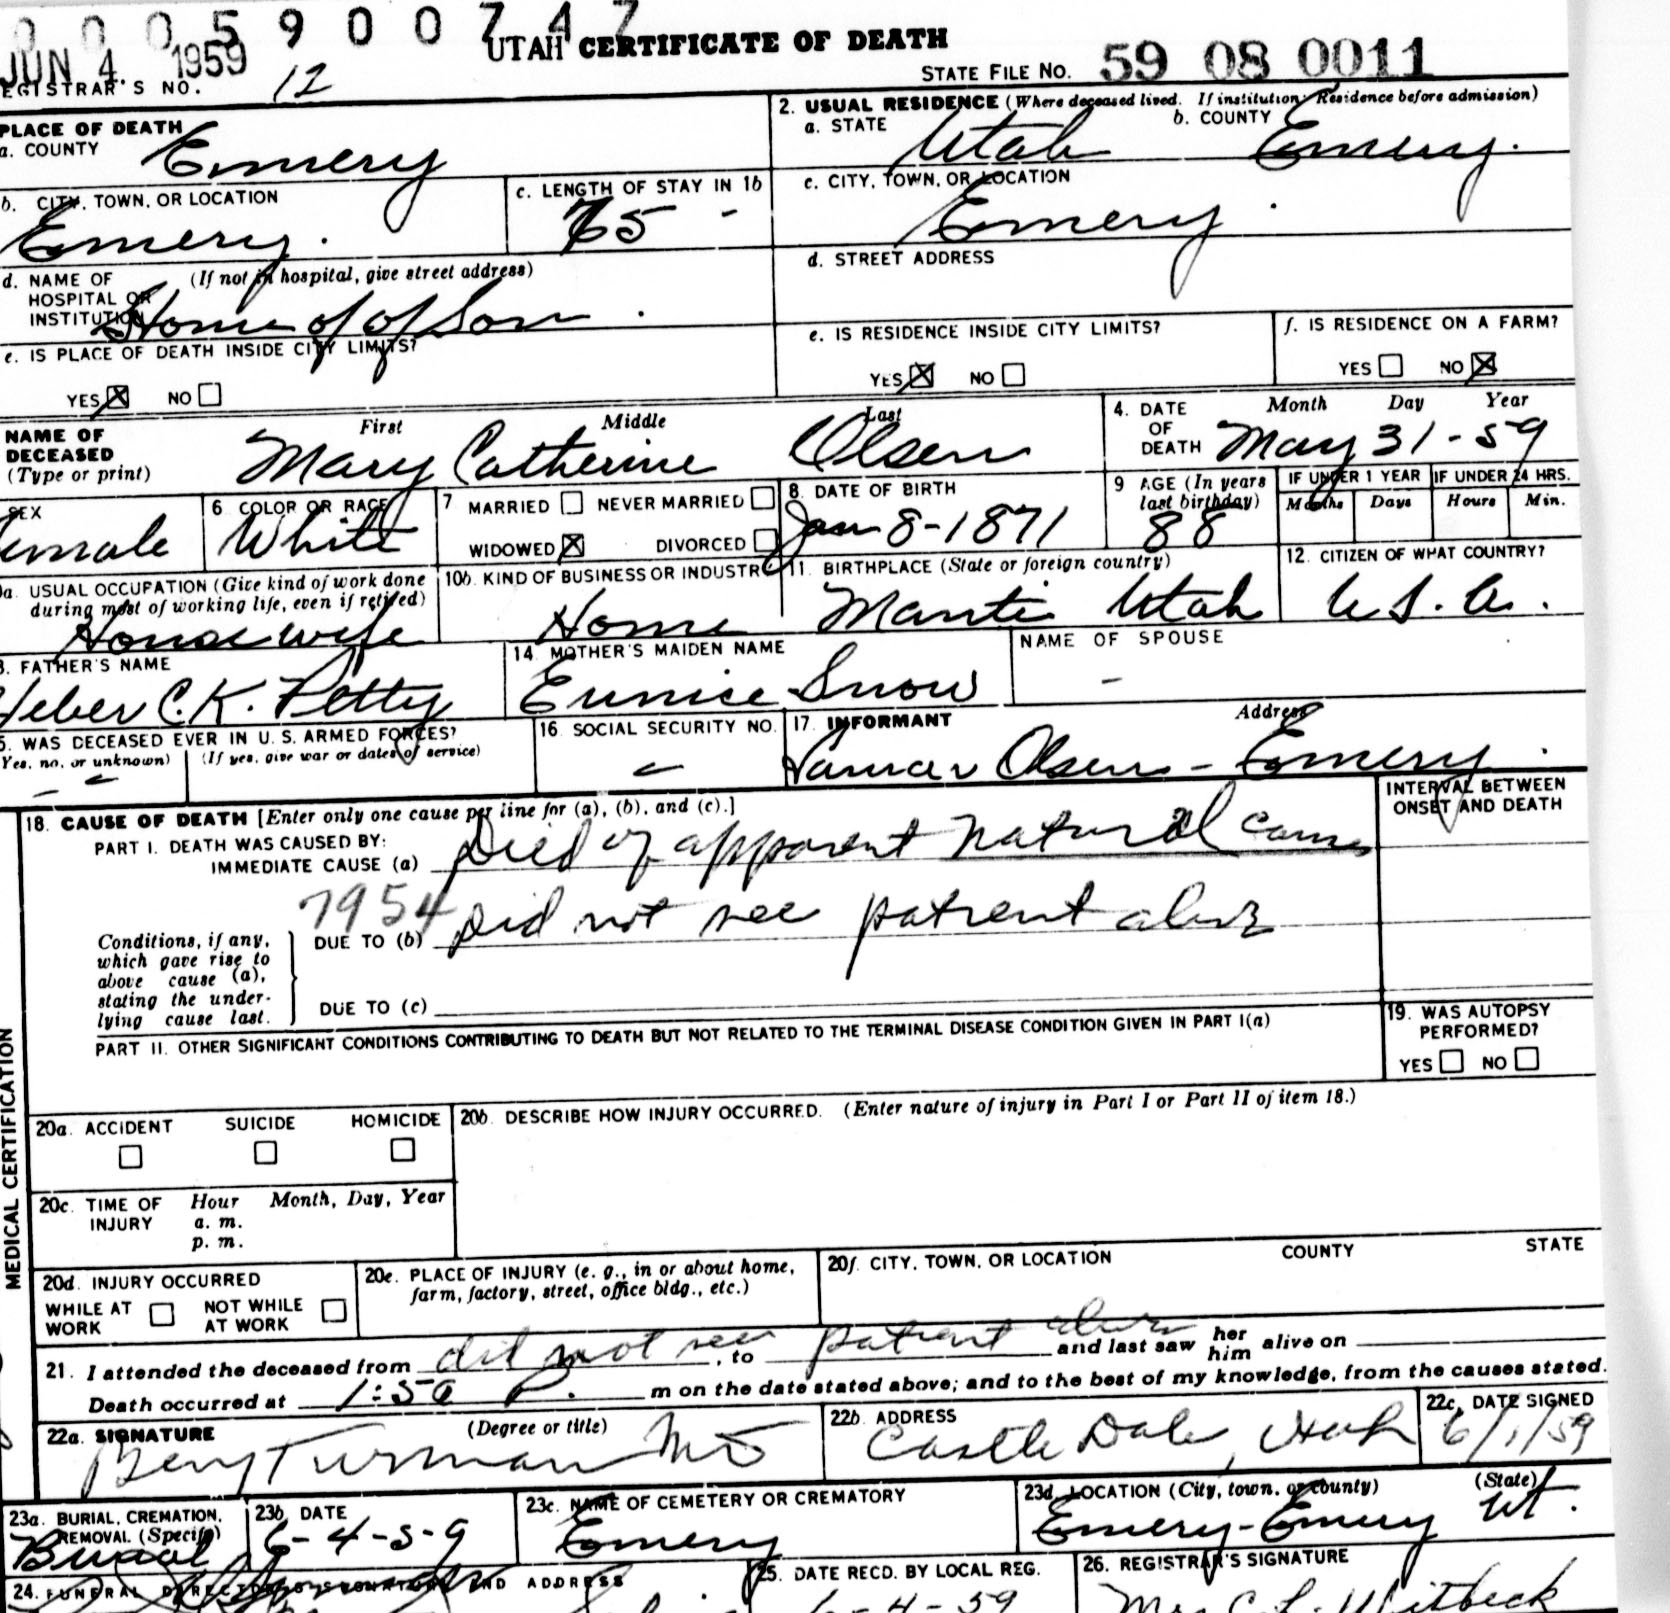 0 0 0 5 9 0 0 7 4 7
JUN 4 1959
UTAH CERTIFICATE OF DEATH
EGISTRAR'S NO. 12
STATE FILE NO. 59 08 0011
PLACE OF DEATH
a. COUNTY Emery
2. USUAL RESIDENCE (Where deceased lived. If institution: Residence before admission)
a. STATE Utah b. COUNTY Emery.
b. CITY, TOWN, OR LOCATION Emery.
c. LENGTH OF STAY IN 1b 75 -
c. CITY, TOWN, OR LOCATION Emery.
d. NAME OF (If not in hospital, give street address)
HOSPITAL OR
INSTITUTION Home of of Son.
d. STREET ADDRESS
e. IS PLACE OF DEATH INSIDE CITY LIMITS?
YES ☒ NO ☐
e. IS RESIDENCE INSIDE CITY LIMITS?
YES ☒ NO ☐
f. IS RESIDENCE ON A FARM?
YES ☐ NO ☒
NAME OF DECEASED (Type or print)
First Middle Last
Mary Catherine Olsen
4. DATE OF DEATH Month Day Year
May 31-59
SEX emale
6. COLOR OR RACE White
7. MARRIED ☐ NEVER MARRIED ☐
WIDOWED ☒ DIVORCED ☐
8. DATE OF BIRTH Jan 8-1871
9 AGE (In years last birthday) 88
IF UNDER 1 YEAR Months Days
IF UNDER 24 HRS. Hours Min.
0a. USUAL OCCUPATION (Give kind of work done
during most of working life, even if retired)
Housewife
10b. KIND OF BUSINESS OR INDUSTRY Home
11. BIRTHPLACE (State or foreign country) Manti Utah
12. CITIZEN OF WHAT COUNTRY? U.S.A.
3. FATHER'S NAME Heber C.K. Petty
14. MOTHER'S MAIDEN NAME Eunice Snow
NAME OF SPOUSE -
5. WAS DECEASED EVER IN U.S. ARMED FORCES?
(Yes, no, or unknown) (If yes, give war or dates of service)
16. SOCIAL SECURITY NO.
17. INFORMANT Address
Lamar Olsen - Emery.
18. CAUSE OF DEATH [Enter only one cause per line for (a), (b), and (c).]
INTERVAL BETWEEN ONSET AND DEATH
PART I. DEATH WAS CAUSED BY:
IMMEDIATE CAUSE (a) Died of apparent natural causes
7954
DUE TO (b) Did not see patient alive
Conditions, if any, which gave rise to above cause (a), stating the underlying cause last.
DUE TO (c)
PART II. OTHER SIGNIFICANT CONDITIONS CONTRIBUTING TO DEATH BUT NOT RELATED TO THE TERMINAL DISEASE CONDITION GIVEN IN PART I(a)
19. WAS AUTOPSY PERFORMED?
YES ☐ NO ☐
MEDICAL CERTIFICATION
20a. ACCIDENT SUICIDE HOMICIDE
20b. DESCRIBE HOW INJURY OCCURRED. (Enter nature of injury in Part I or Part II of item 18.)
20c. TIME OF INJURY Hour Month, Day, Year
a. m.
p. m.
20d. INJURY OCCURRED
WHILE AT WORK ☐ NOT WHILE AT WORK ☐
20e. PLACE OF INJURY (e. g., in or about home,
farm, factory, street, office bldg., etc.)
20f. CITY, TOWN, OR LOCATION COUNTY STATE
21. I attended the deceased from did not see, to patient alive and last saw her him alive on
Death occurred at 1:50 P. m on the date stated above; and to the best of my knowledge, from the causes stated.
22a. SIGNATURE (Degree or title) Turman MD
22b. ADDRESS Castle Dale, Utah
22c. DATE SIGNED 6/1/59
23a. BURIAL, CREMATION, REMOVAL (Specify) Burial
23b. DATE 6-4-59
23c. NAME OF CEMETERY OR CREMATORY Emery
23d. LOCATION (City, town, or county) (State)
Emery-Emery Ut.
24. FUNERAL DIRECTOR'S SIGNATURE AND ADDRESS
25. DATE RECD. BY LOCAL REG. 6-4-59
26. REGISTRAR'S SIGNATURE Mrs C.L. Whitbeck